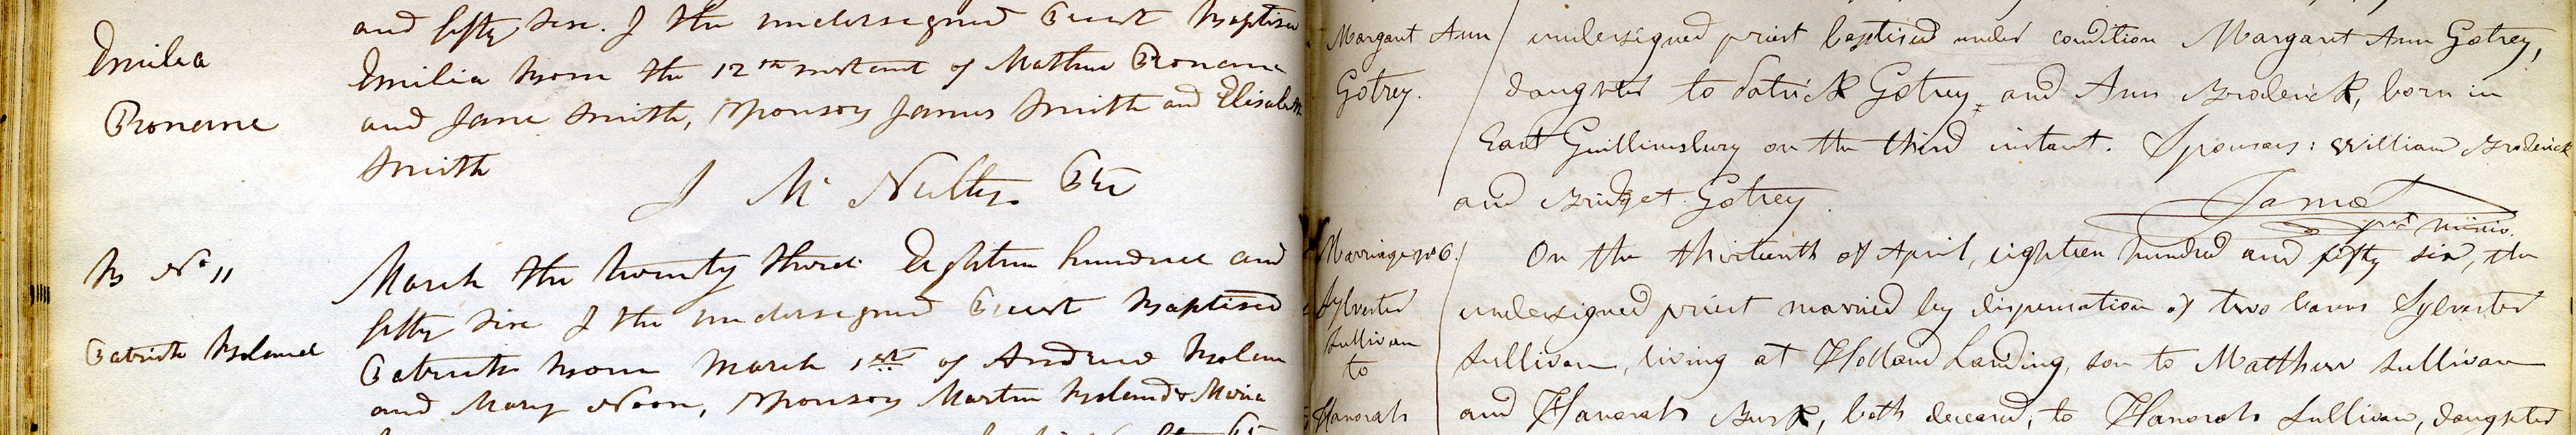 and fifty six. I the undersigned Priest Baptised
Emilia
Emilia Born the 12th instant of Mathew Cronane
Cronane
and Jane Smith, Sponsors James Smith and Elisabeth
Smith
J Mc Nulty Pst
B No 11
March the twenty third Eighteen hundred and
fifty six I the undersigned Priest Baptised
Patrick Boland
Patrick Born March 1st of Andrew Bolan
and Mary Noon, Sponsors Martin Boland & Maria
Margaret Ann
undersigned priest baptised under condition Margaret Ann Gotrey,
Gotrey.
daughter to Patrick Gotrey and Ann Broderick, born in
East Guillimsbury on the third instant. Sponsors: William Broderick
and Bridget Gotrey.
Marriage No 6.
On the thirteenth of April, eighteen hundred and fifty six, the
Sylvester
undersigned priest married by dispensation of two banns Sylvester
Sullivan
Sullivan, living at Holland Landing, son to Matthew Sullivan
to
Hanorah
and Hanorah Burk, both deceased, to Hanorah Sullivan, daughter